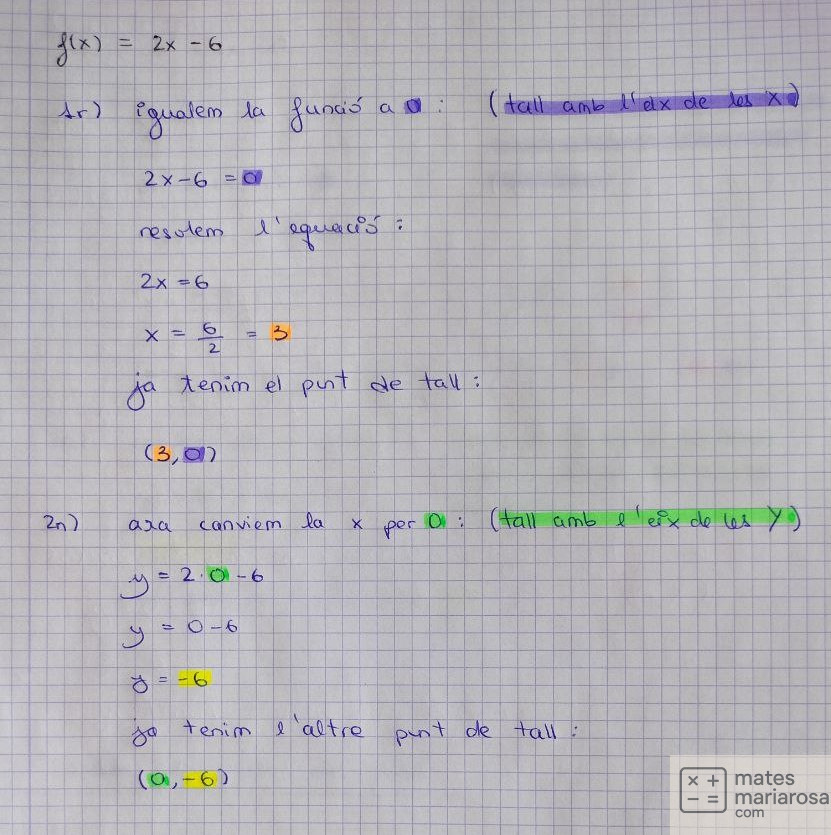 f(x) = 2x - 6
1r) igualem la funció a 0 : (tall amb l'eix de les x)
2x - 6 = 0
resolem l'equació :
2x = 6
x = 6/2 = 3
ja tenim el punt de tall :
(3, 0)
2n) ara canviem la x per 0 : (tall amb l'eix de les y)
y = 2 · 0 - 6
y = 0 - 6
y = -6
ja tenim l'altre punt de tall :
(0, -6)
× + - =
mates
mariarosa
com